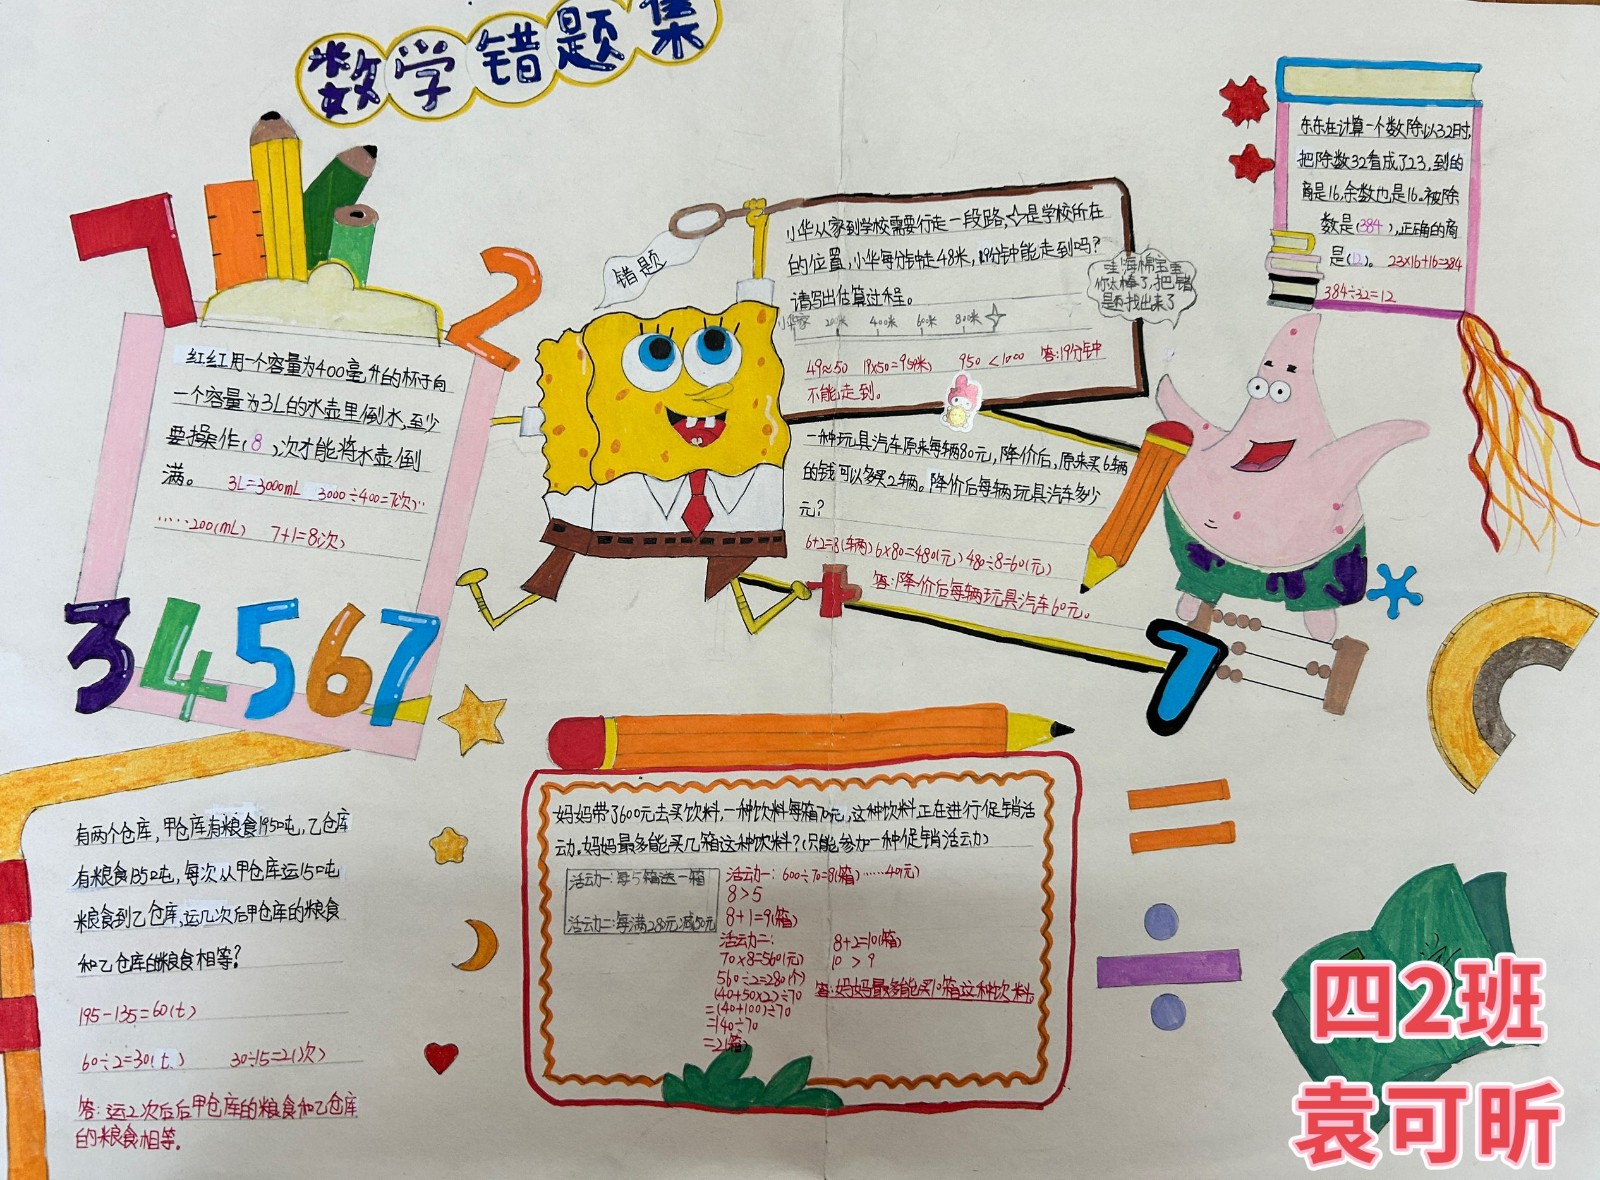 数学错题集
红红用一个容量为400毫升的杯子向
一个容量为3L的水壶里倒水,至少
要操作(8)次才能将水壶倒
满。 3L=3000mL 3000÷400=7(次)…
……200(mL) 7+1=8(次)
错题
小华从家到学校需要行走一段路,☆是学校所在
的位置,小华每分钟走48米,19分钟能走到吗?
请写出估算过程。
小华家 200米 400米 600米 800米
49≈50 19×50=950(米) 950<1000 答:19分钟
不能走到。
哇海棉宝宝
你太棒了,把错
题都找出来了
一种玩具汽车原来每辆80元,降价后,原来买6辆
的钱可以多买2辆。降价后每辆玩具汽车多少
元?
6+2=8(车辆) 6×80=480(元) 480÷8=60(元)
答:降价后每辆玩具汽车60元。
东东在计算一个数除以32时,
把除数32看成了23,到的
商是16,余数也是16。被除
数是(384),正确的商
是(12)。 23×16+16=384
384÷32=12
1
2
3 4 5 6 7
7
有两个仓库,甲仓库有粮食195吨,乙仓库
有粮食135吨,每次从甲仓库运15吨
粮食到乙仓库,运几次后甲仓库的粮食
和乙仓库的粮食相等?
195-135=60(t)
60÷2=30(t) 30÷15=2(次)
答:运2次后后甲仓库的粮食和乙仓库
的粮食相等。
妈妈带了600元去买饮料,一种饮料每箱70元,这种饮料正在进行促销活
动。妈妈最多能买几箱这种饮料?(只能参加一种促销活动)
活动一:每5箱送一箱
活动二:每满280元减50元
活动一:600÷70=8(箱)……40(元)
8>5
8+1=9(箱)
活动二:
70×8=560(元)
560÷2=280(个)
(40+50×2)÷70
=(40+100)÷70
=140÷70
=2(箱)
8+2=10(箱)
10>9
答:妈妈最多能买10箱这种饮料。
四2班
袁可昕